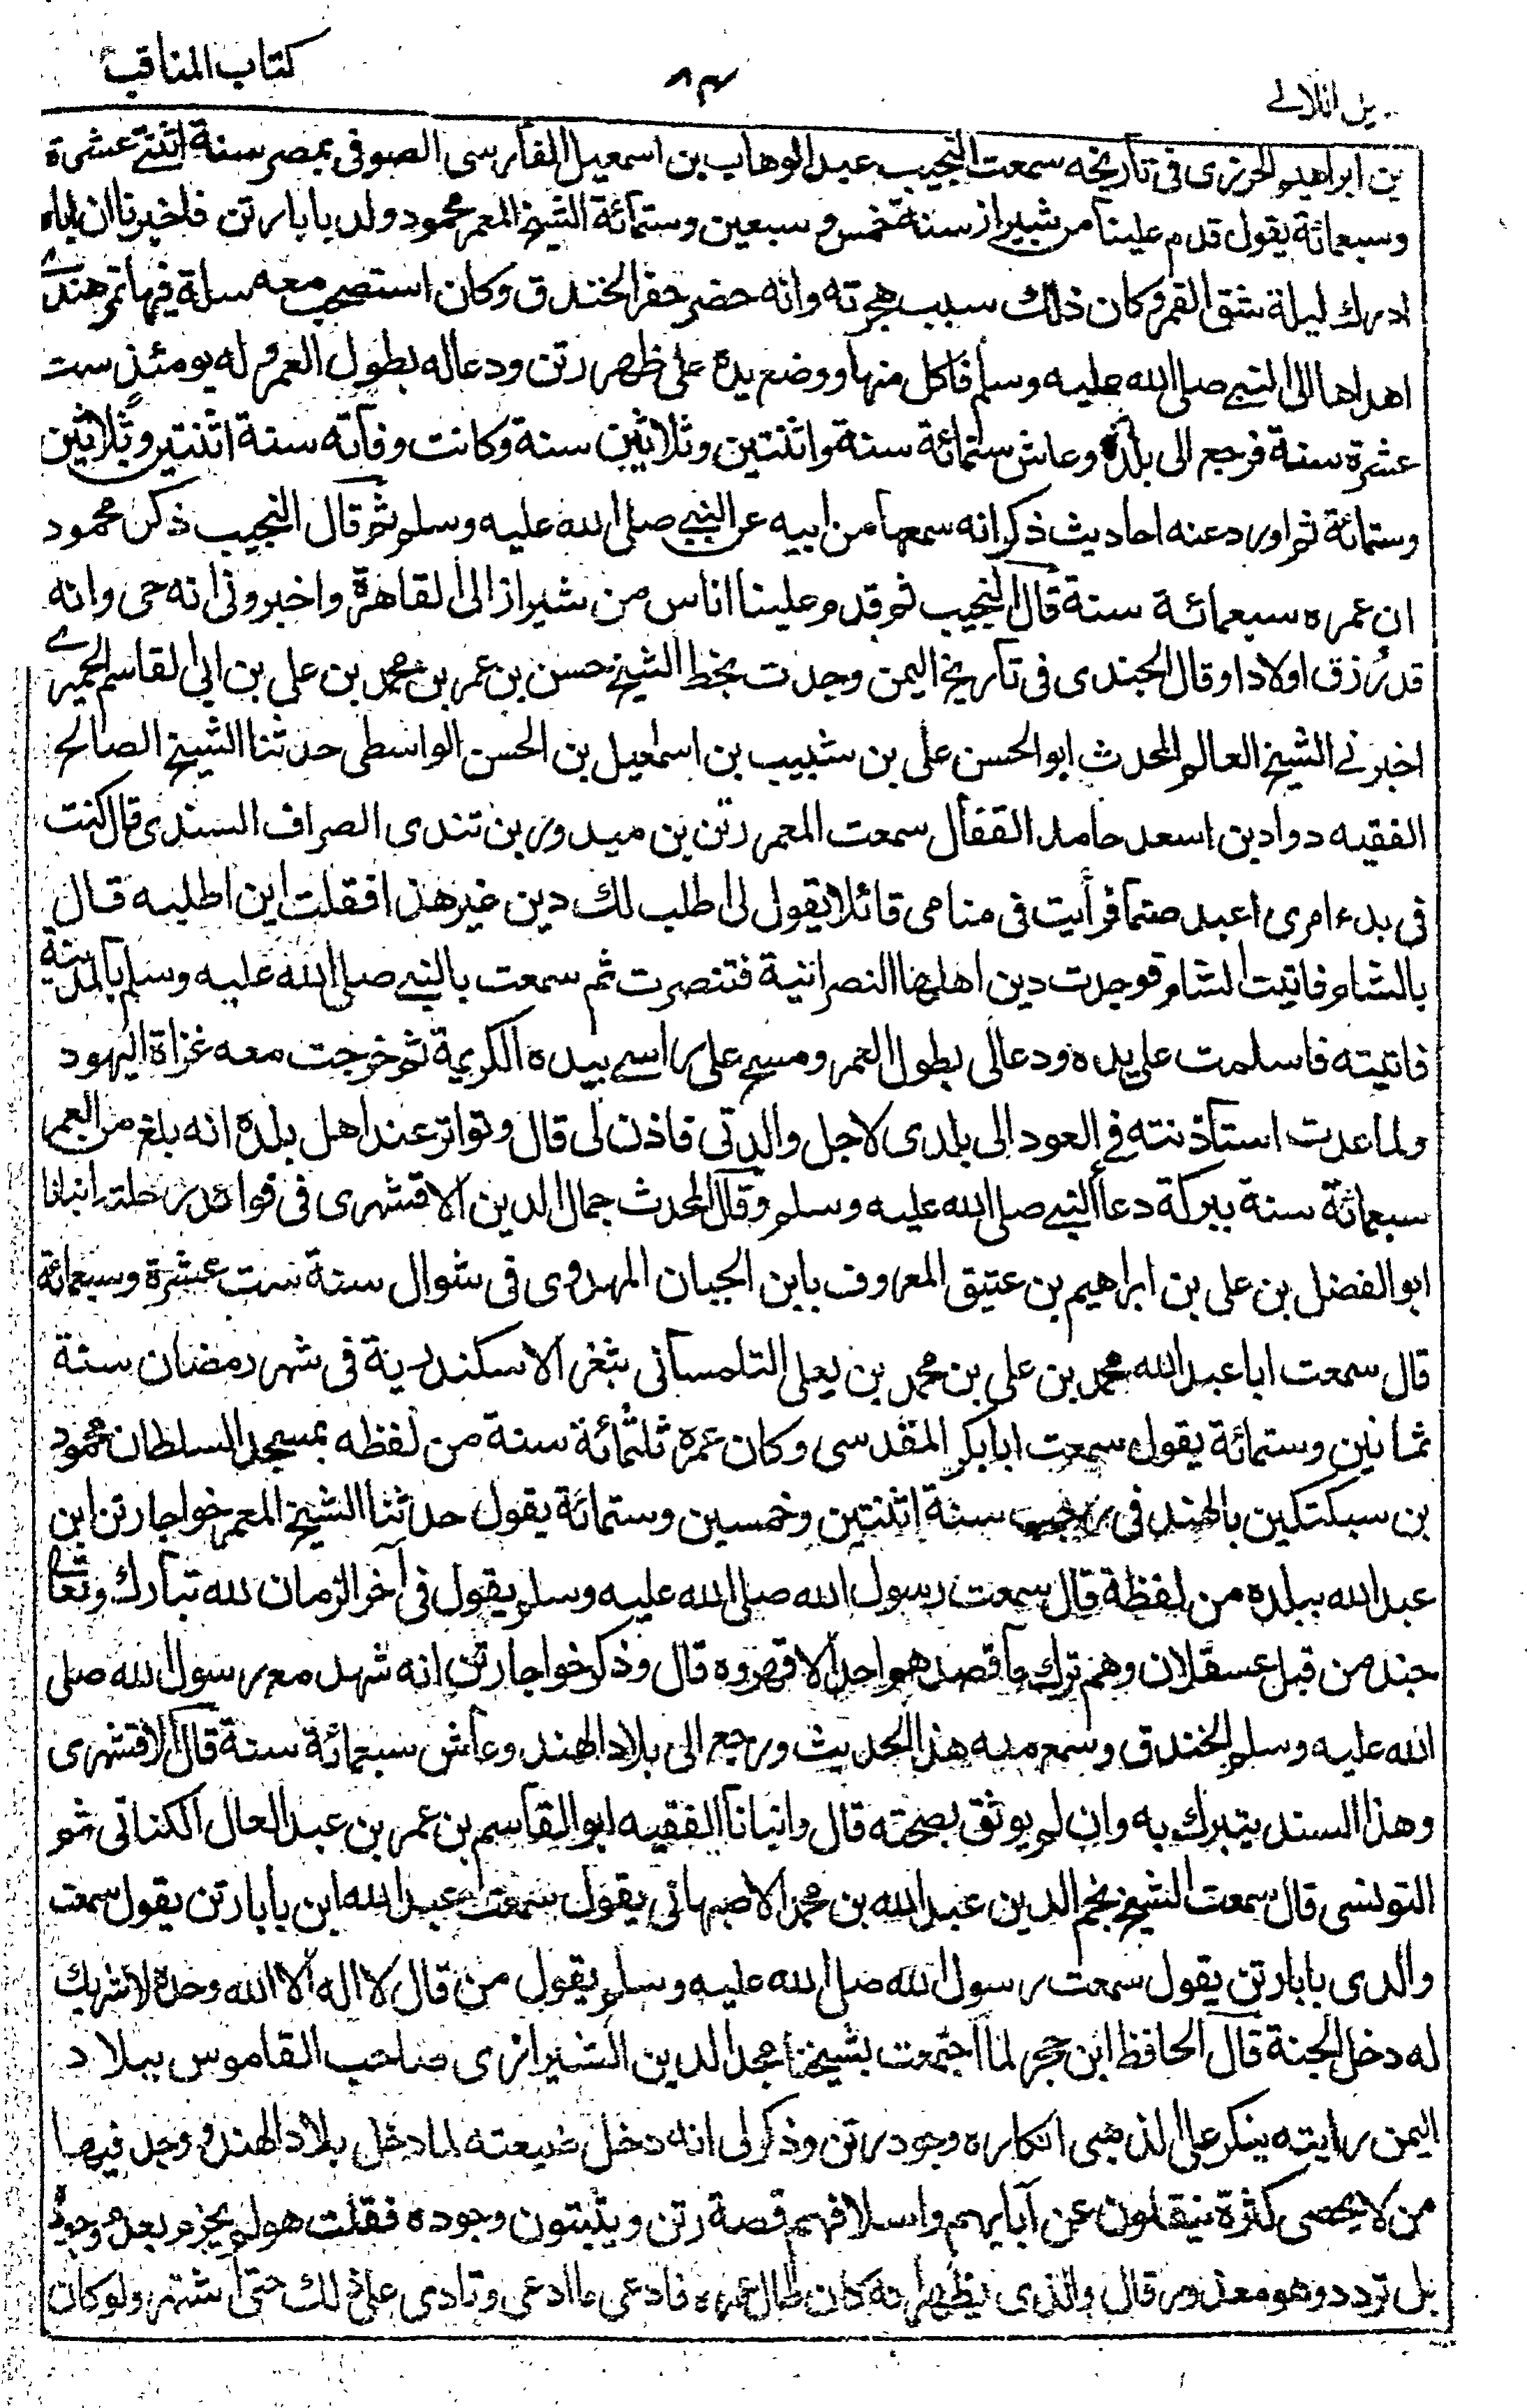 كتاب المناقب
۸۳
يل اللآلے
بن ابراهيم الجزرى فى تاريخه سمعت النجيب عبد الوهاب بن اسمعيل الفارسى الصوفى بمصر سنة اثنتے عشرة
وسبعمائة يقول قدم علينا من شيراز سنة خمس و سبعين وستمائة الشيخ المعمر محمود ولد بابا رتن فاخبرنا ان اباه
ادرك ليلة شق القمر و كان ذلك سبب هجرته وانه حضر حفر الخندق وكان استصحب معه سلة فيها تمر هندى
اهداها الى النبے صلى الله عليه وسلم فاكل منها ووضع يده على ظهر رتن ودعا له بطول العمر و له يومئذ ست
عشرة سنة فرجع الى بلده وعاش ستمائة سنة واثنتين وثلاثين سنة وكانت وفاته سنة اثنتين وثلاثين
وستمائة ثم اورد عنه احاديث ذكر انه سمعها من ابيه عن النبے صلى الله عليه وسلم ثم قال النجيب ذكر محمود
ان عمره سبعمائة سنة قال النجيب ثم قدم علينا اناس من شيراز الى القاهرة واخبرونى انه حى وانه
قد رزق اولادا وقال الجندى فى تاريخ اليمن وجدت بخط الشيخ حسن بن عمر بن محمد بن على بن ابى القاسم الحميرے
اخبرنے الشيخ العالم المحدث ابو الحسن على بن شبيب بن اسمعيل بن الحسن الواسطى حدثنا الشيخ الصالح
الفقيه دواد بن اسعد حامد القفال سمعت المعمر رتن بن ميدور بن تندى الصراف السندى قال كنت
فى بدء امرى اعبد صنما فرأيت فى منامى قائلا يقول لى اطلب لك دين غير هذا فقلت اين اطلبه قال
بالشام فاتيت الشام فوجدت دين اهلها النصرانية فتنصرت ثم سمعت بالنبے صلى الله عليه وسلم بالمدينة
فاتيته فاسلمت على يده ودعا لى بطول العمر ومسح على راسے بيده الكريمة ثم خرجت معه غزاة اليهود
ولما عدت استأذنته فے العود الى بلدى لاجل والدتى فاذن لى قال وتواتر عند اهل بلده انه بلغ من العمر
سبعمائة سنة ببركة دعا النبے صلى الله عليه وسلم وقال المحدث جمال الدين الاقشهرى فى فوائد رحلته انبانا
ابو الفضل بن على بن ابراهيم بن عتيق المعروف بابن الجبان المهدوى فى شوال سنة ست عشرة وسبعمائة
قال سمعت ابا عبد الله محمد بن على بن محمد بن يعلى التلمسانى بثغر الاسكندرية فى شهر رمضان سنة
ثمانين وستمائة يقول سمعت ابا بكر المقدسى وكان عمره ثلثمائة سنة من لفظه بمسجد السلطان محمود
بن سبكتكين بالهند فى رجب سنة اثنتين وخمسين وستمائة يقول حدثنا الشيخ المعمر خواجا رتن ابن
عبد الله ببلده من لفظة قال سمعت رسول الله صلى الله عليه وسلم يقول فى آخر الزمان لله تبارك وتعالى
جند من قبل عسقلان وهم ترك ما قصدهم واحد الا قهروه قال وذكر خواجا رتن انه شهد مع رسول الله صلى
الله عليه وسلم الخندق وسمع منه هذا الحديث ورجع الى بلاد الهند وعاش سبعمائة سنة قال الاقشهرى
وهذا السند يتبرك به وان لم يوثق بصحته قال وانبانا الفقيه ابو القاسم بن عمر بن عبد العال الكنانى ثم
التونسى قال سمعت الشيخ نجم الدين عبد الله بن محمد الاصبهانى يقول سمعت عبد الله ابن بابا رتن يقول سمعت
والدى بابا رتن يقول سمعت رسول الله صلى الله عليه وسلم يقول من قال لا اله الا الله وحده لا شريك
له دخل الجنة قال الحافظ ابن حجر لما اجتمعت بشيخنا مجد الدين الشيرازى صاحب القاموس ببلاد
اليمن رايته ينكر على الذهبى انكاره وجود رتن وذكر لى انه دخل ضيعته لما دخل بلاد الهند و وجد فيها
من لا يحصى كثرة ينقلون عن آبايهم واسلافهم قصة رتن ويثبتون وجوده فقلت هو لم يجزم بعدم وجوده
بل تردد وهو معذور قال والذى يظهر انه كان طال عمره فادعى ما ادعى وتمادى على ذلك حتى اشتهر ولو كان